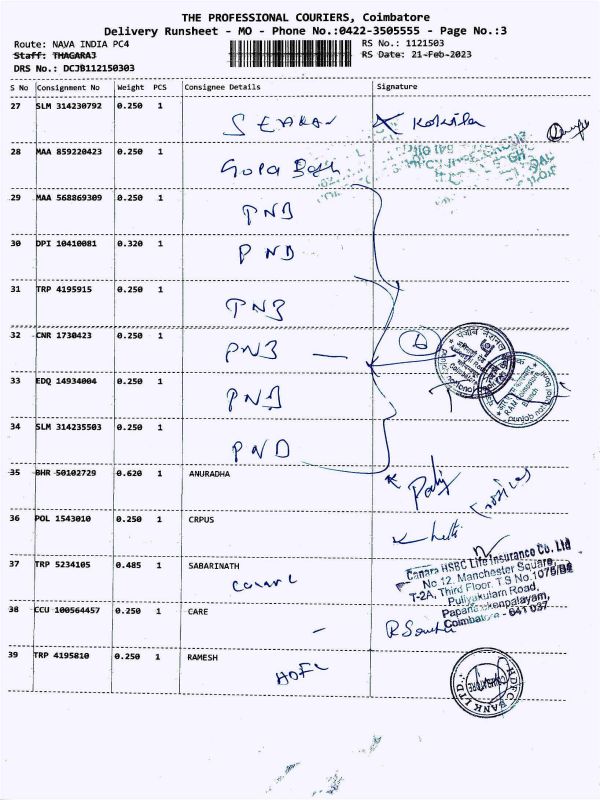 THE PROFESSIONAL COURIERS, Coimbatore
Delivery Runsheet - MO - Phone No.:0422-3505555 - Page No.:3
Route: NAVA INDIA PC4
RS No.: 1121503
Staff: THAGARAJ
RS Date: 21-Feb-2023
DRS No.: DCJB112150303
S No Consignment No Weight PCS Consignee Details Signature
27 SLM 314230792 0.250 1
28 MAA 859220423 0.250 1
29 MAA 568869309 0.250 1
PNB
30 DPI 10410081 0.320 1
PNB
31 TRP 4195915 0.250 1
PNB
32 CNR 1730423 0.250 1
PNB
33 EDQ 14934004 0.250 1
PNB
34 SLM 314235503 0.250 1
PNB
35 BHR 50102729 0.620 1 ANURADHA
36 POL 1543010 0.250 1 CRPUS
37 TRP 5234105 0.485 1 SABARINATH
Canara HSBC Life Insurance Co. Ltd
No 12, Manchester Square,
T-2A, Third Floor, T S No.
Puliyakulam Road,
Papanaickenpalayam,
Coimbatore - 641 037
38 CCU 100564457 0.250 1 CARE
39 TRP 4195810 0.250 1 RAMESH
HDFC
HDFC BANK LTD.
COIMBATORE